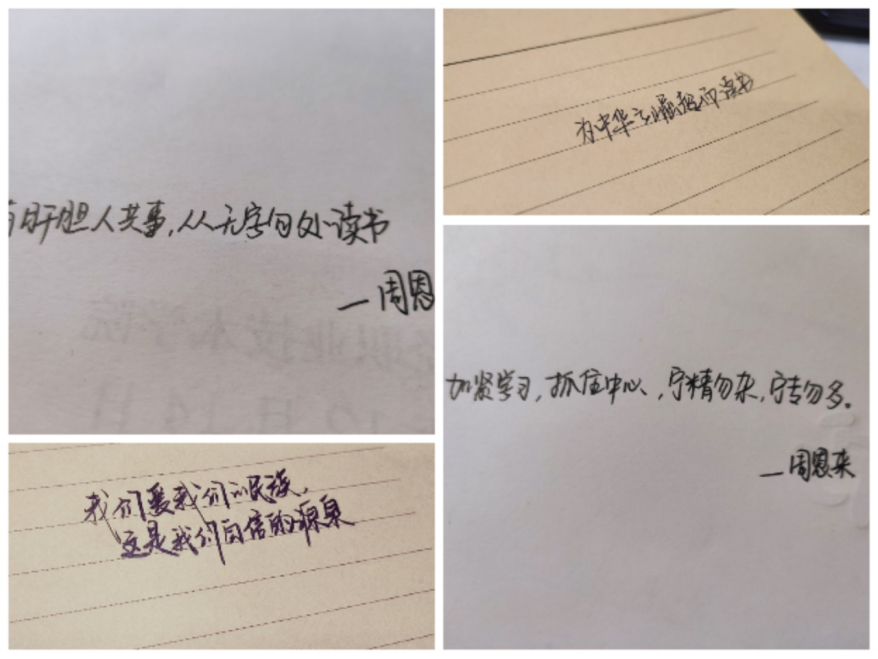 肝胆人共事,从无字句处读书
—周恩
为中华之崛起而读书
加紧学习,抓住中心,宁精勿杂,宁专勿多。
—周恩来
我们爱我们的民族,
这是我们自信的源泉
职业技术学院
12月14日